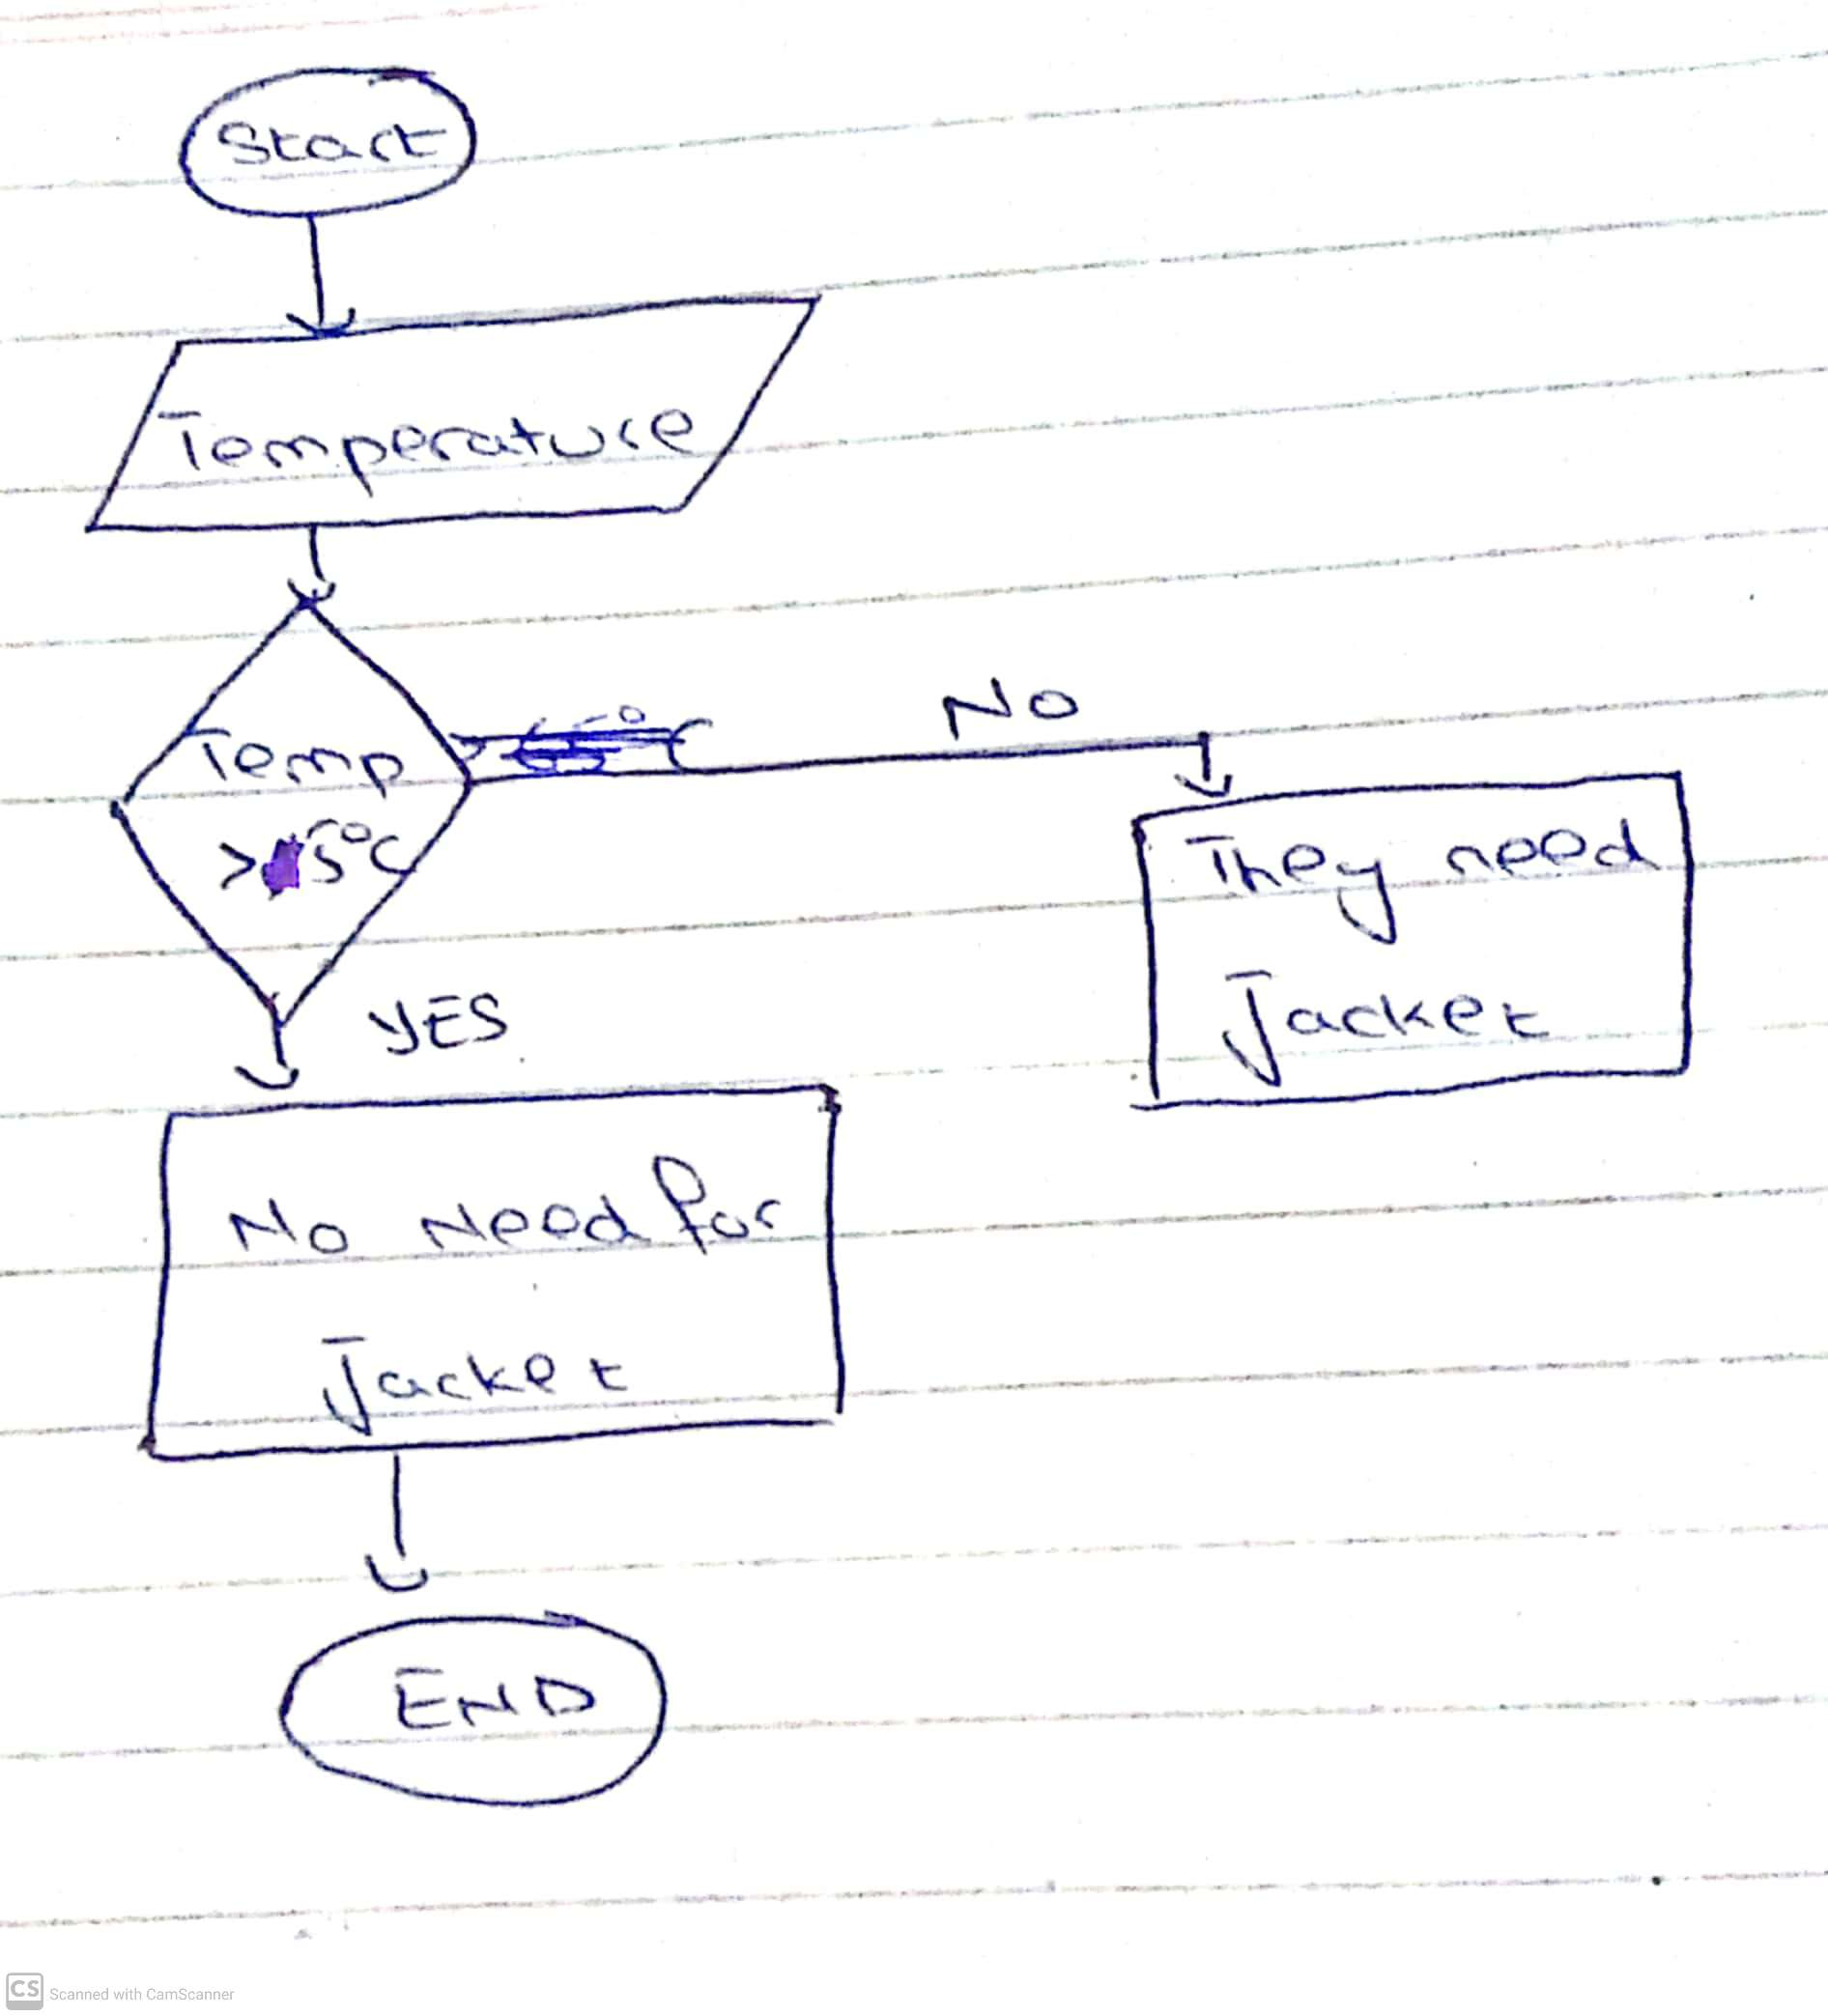 Start
Temperature
Temp
No
>15°C
They need
Jacket
YES
No Need for
Jacket
END
CS Scanned with CamScanner